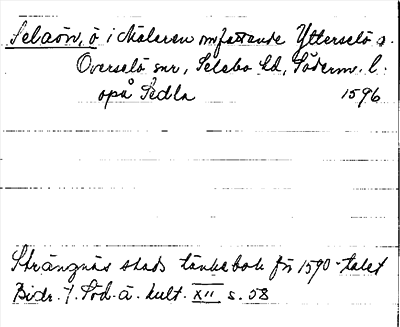 Selaön, ö i Mälaren omfattande Ytterselö o.
Överselö snr, Selebo hd, Söderm. l.
opå Sedla 1596
Strängnäs stads tänkebok för 1590-talet
Bidr. t. Söd. ä. kult. XII s. 58